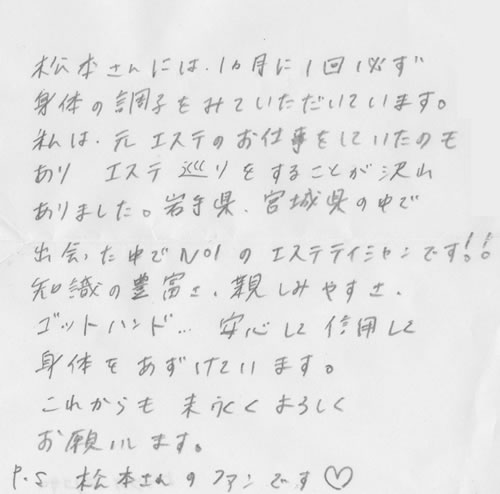 松本さんには、1ヵ月に1回必ず
身体の調子をみていただいています。
私は、元エステのお仕事をしていたのも
あり エステ巡りをすることが沢山
ありました。岩手県、宮城県の中で
出会った中でNo1のエステティシャンです!!
知識の豊富さ、親しみやすさ、
ゴットハンド… 安心して信用して
身体をあずけています。
これからも末永くよろしく
お願いします。
P.S 松本さんのファンです♡